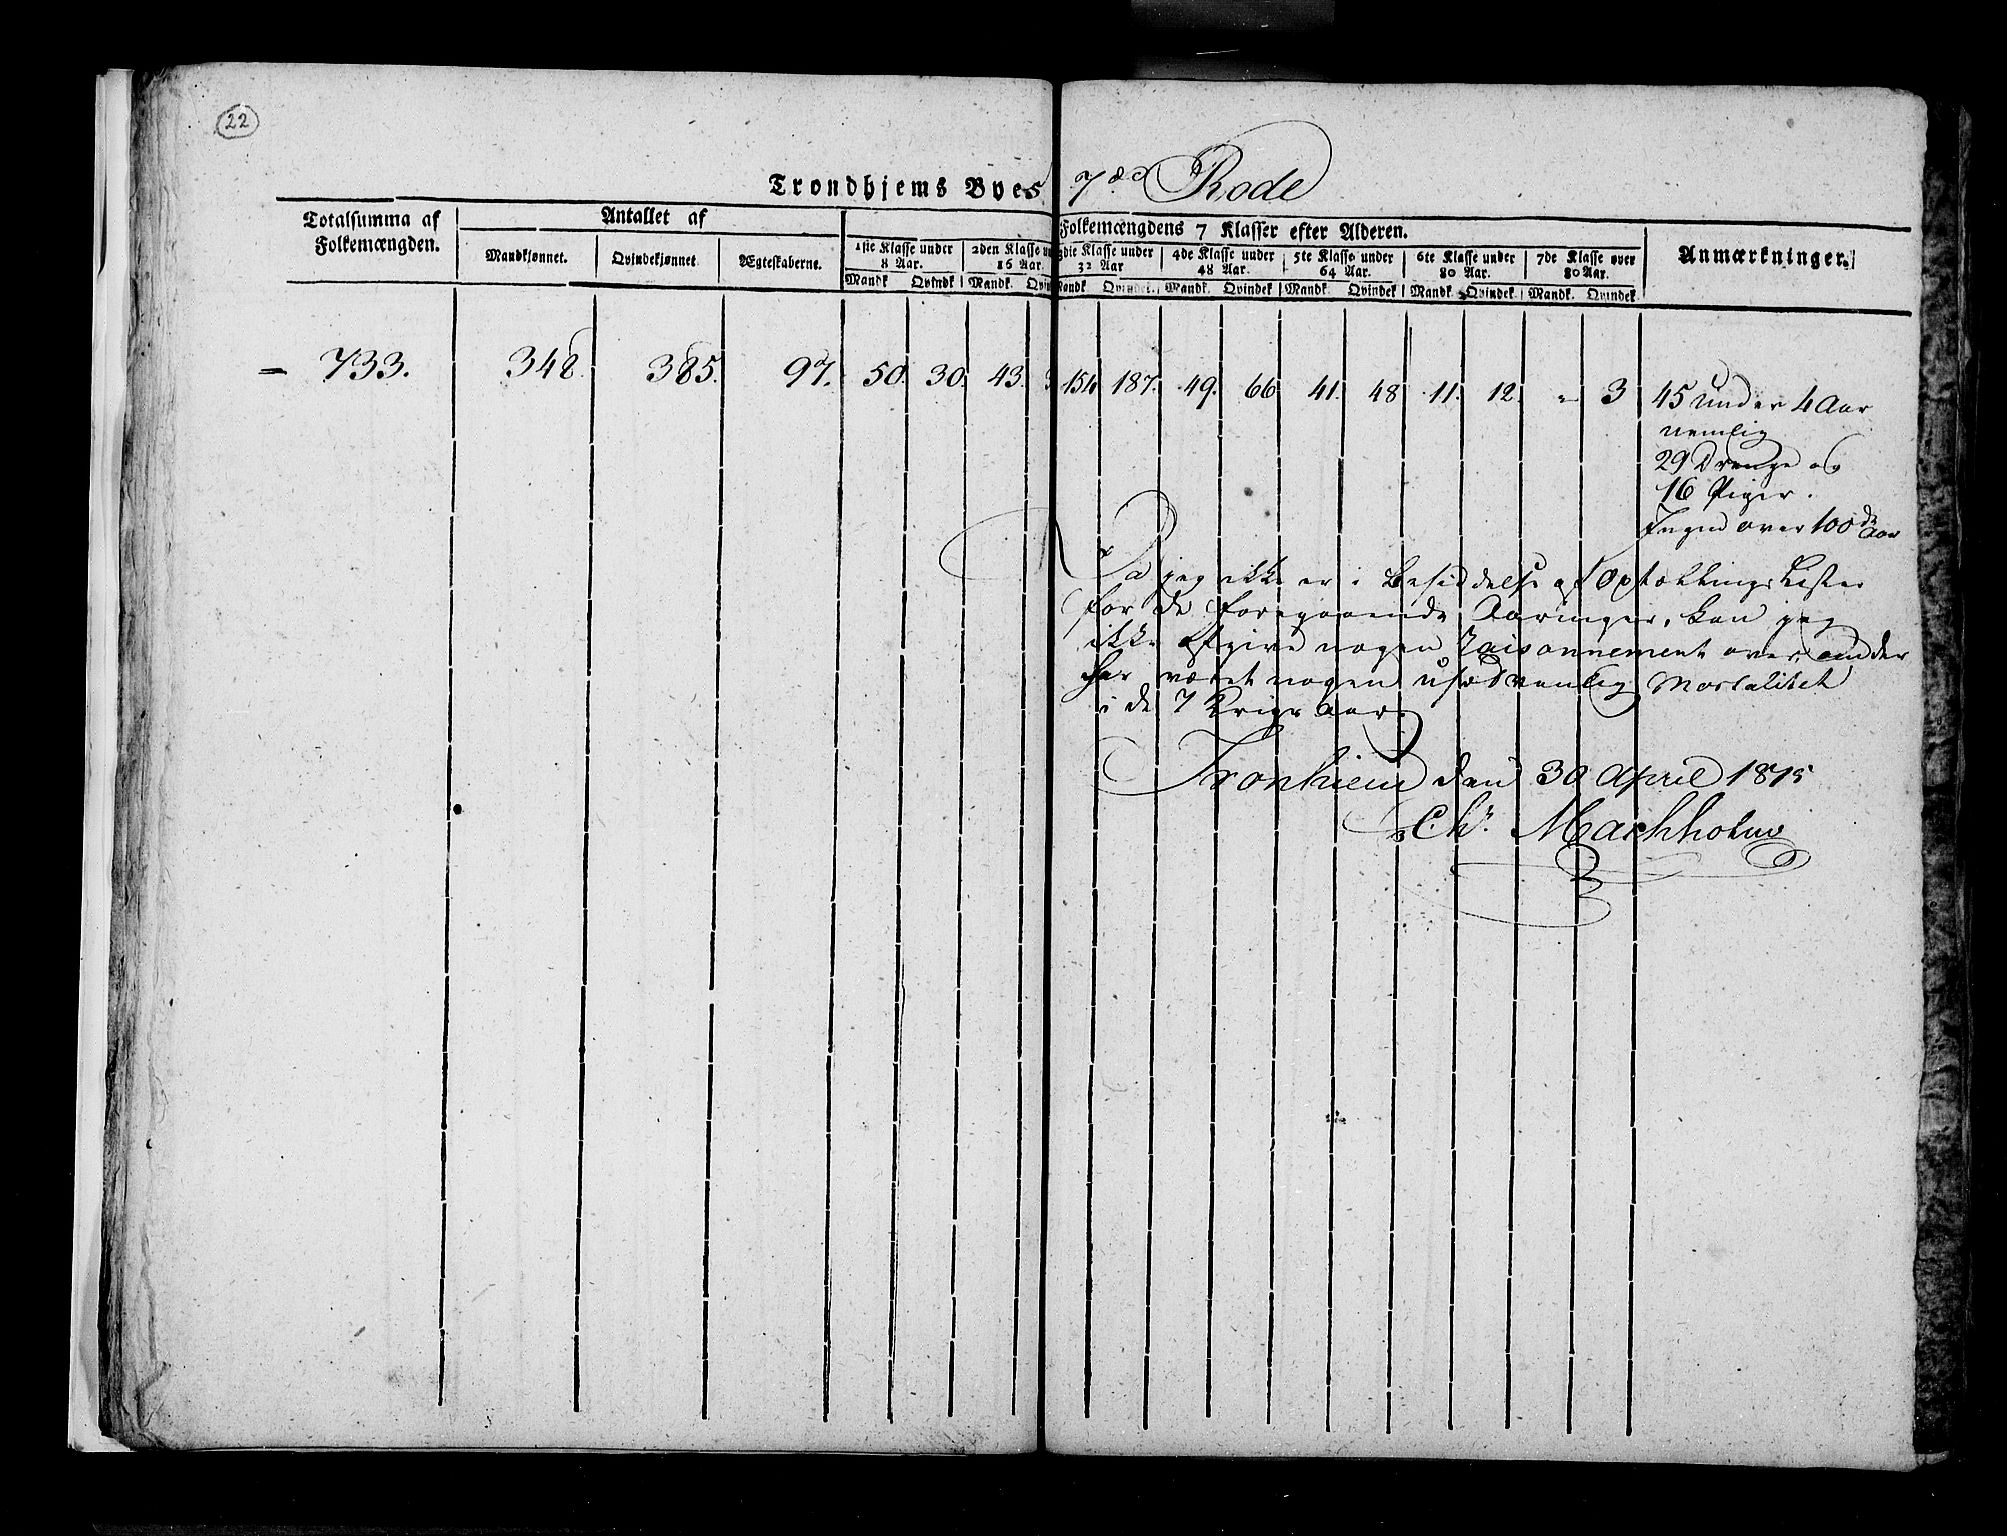 22
Trondhjems Byes 7de Rode
Totalsumma af Folkemængden.
Antallet af
Mandkjønnet. Qvindekjønnet Ægteskaberne.
Folkemængdens 7 Klasser efter Alderen.
1ste Klasse under 8 Aar.
2den Klasse un 16 Aar.
3die Klasse under 32 Aar
4de Klasse under 48 Aar.
5te Klasse under 64 Aar.
6te Klasse under 80 Aar.
7de Klasse over 80 Aar.
Mandk Qvindk Mandk. Qvin Mandk. Qvindek. Mandk. Qvindek Mandk. Qvindek. Mandk. Qvindek. Mandk. Qvindek
Anmærkninger.
= 733. 348. 385. 97. 50. 30. 43. 3 154 187. 49. 66 41. 48 11. 12. " 3
45 under 4 Aar
nemlig
29 Drenge og
16 Piger.
Ingen over 100de Aar
Da jeg ikke er i Besiddelse af Optællings Lister
for de foregaaende Aaringer, kan jeg
ikke afgive nogen Raisonnement over, om der
har været nogen usædvanlig Mortalitet
i de 7 Krigs aar.
Tronhiem den 30 April 1815
Chr. Machholm